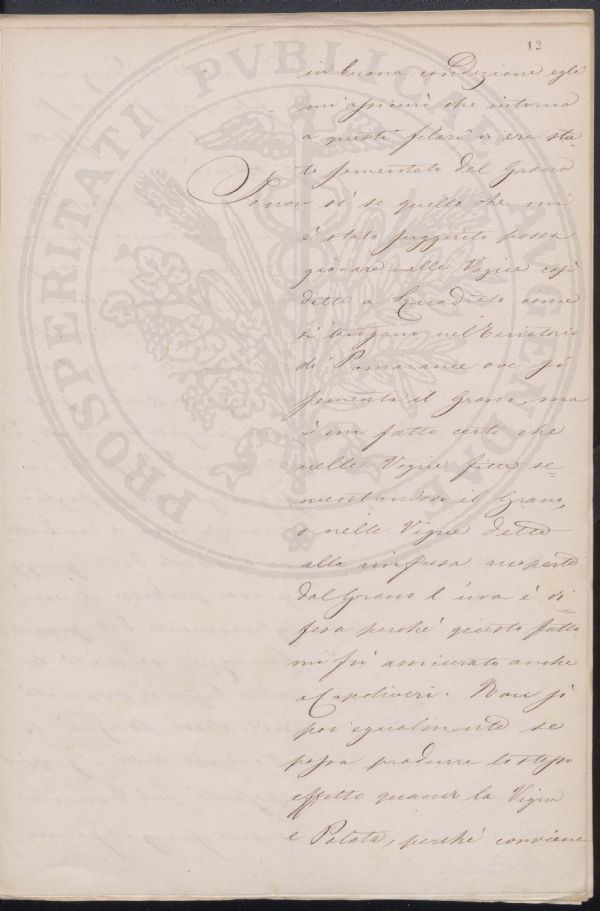 12
in buona condizione egli
mi assicurò che intorno
a questi filari vi era sta=
to sementato del Grano
Io non sò se quello che mi
è stato suggerito possa
giovare nelle Vigne così
dette a Quadrato come
si tengano nel Territorio
di Pomarance ove si
sementa il Grano, ma
è un fatto certo che
nelle Vigne fitte se=
mentandovi il Grano,
o nelle Vigne dette
alla rinfusa
dal Grano l'uva è di=
fesa perché questo fatto
mi fù assicurato anche
a Capoliveri. Non sò
poi egualmente se
possa produrre lo stesso
effetto quando la Vigna
è Potata, perché conviene
PROSPERITATI PVBLICAE AVGENDAE